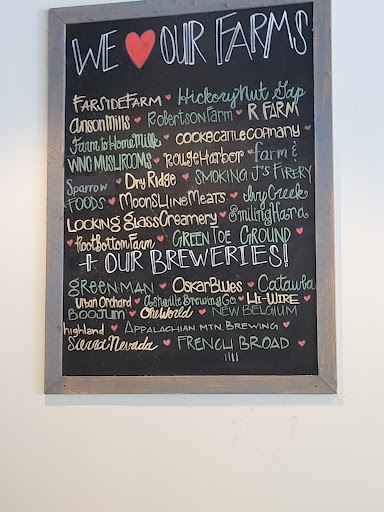 WE ♥ OUR FARMS
FARSIDE FARM ♥ Hickory Nut Gap
Anson Mills ♥ Robertson Farm ♥ R FARM
Farm to Home Milk ♥ COOKE CATTLE COMPANY ♥
WNC MUSHROOMS ♥ Rouge Harbor ♥ farm &
Sparrow ♥ Dry Ridge ♥ SMOKING J'S FIERY
FOODS ♥ Moon's Line Meats ♥ Ivy Creek
Looking Glass Creamery ♥ Smiling Hara
♥ Root Bottom Farm ♥ GREEN TOE GROUND ♥
+ OUR BREWERIES!
GREEN MAN ♥ Oskar Blues ♥ Catawba
Urban Orchard ♥ Asheville Brewing Co. ♥ HI-WIRE
BOOJUM ♥ One World ♥ NEW BELGIUM
highland ♥ APPALACHIAN MTN. BREWING ♥
Sierra Nevada ♥ FRENCH BROAD ♥